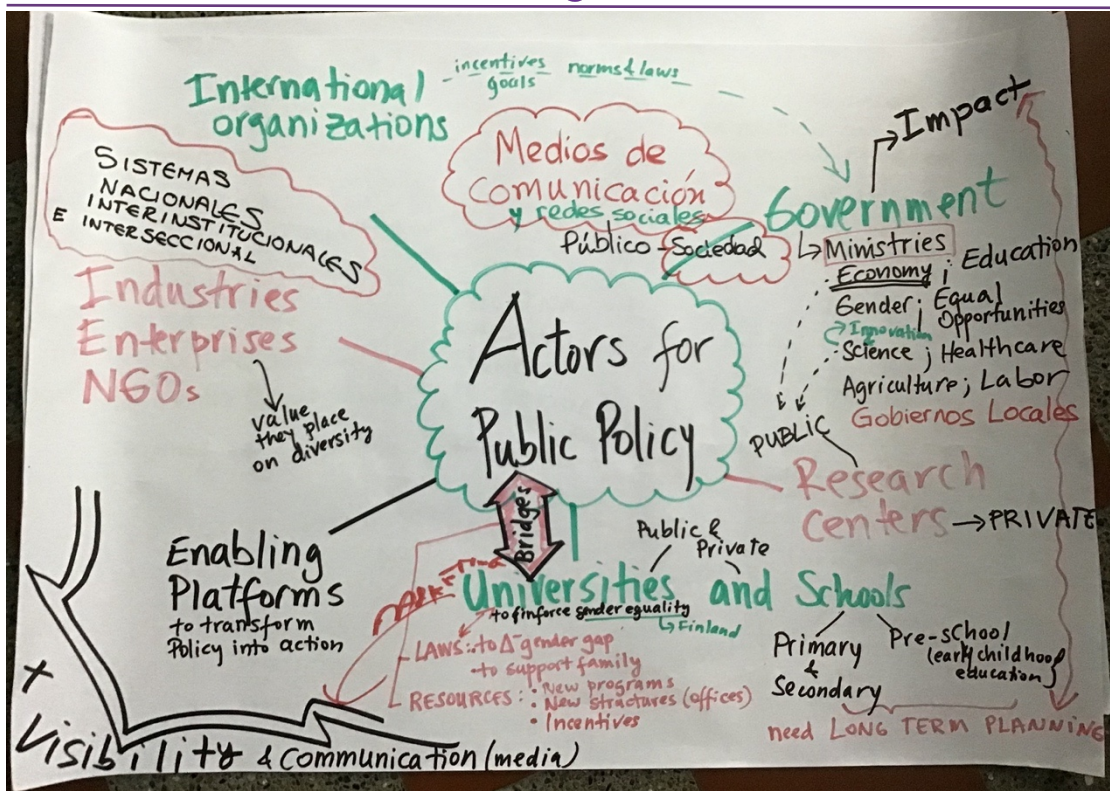 International
organizations
incentives norms & laws
goals
Impact
SISTEMAS
NACIONALES
INTERINSTITUCIONALES
E INTERSECCIONAL
Medios de
comunicación
y redes sociales
Público - Sociedad
Government
Ministries
Economy ; Education
Gender ; Equal
Opportunities
Innovation
Science ; Healthcare
Agriculture ; Labor
Gobiernos Locales
Industries
Enterprises
NGOs
value
they place
on diversity
Actors for
Public Policy
PUBLIC
Research
centers → PRIVATE
Bridges
Enabling
Platforms
to transform
Policy into action
Public &
Private
Universities and Schools
to finforce gender equality
Finland
LAWS: to Δ gender gap
to support family
RESOURCES: • New programs
• New structures (offices)
• Incentives
Primary
&
Secondary
Pre-school
(early childhood
education)
need LONG TERM PLANNING
+
Visibility & communication (media)